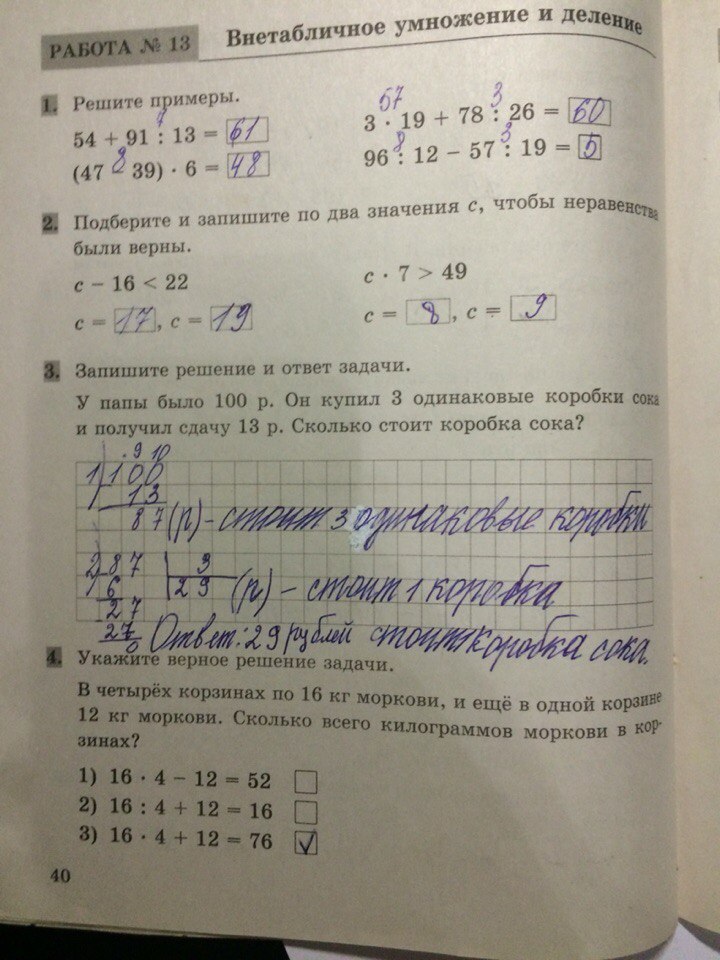 РАБОТА № 13
Внетабличное умножение и деление
1. Решите примеры.
7
54 + 91 : 13 = 61
8
(47 − 39) · 6 = 48
57 3
3 · 19 + 78 : 26 = 60
8 3
96 : 12 − 57 : 19 = 5
2. Подберите и запишите по два значения c, чтобы неравенства
были верны.
c − 16 < 22
c = 17, c = 19
c · 7 > 49
c = 8, c = 9
3. Запишите решение и ответ задачи.
У папы было 100 р. Он купил 3 одинаковые коробки сока
и получил сдачу 13 р. Сколько стоит коробка сока?
. 9 10
1) 100
13
87 (р) - стоит 3 одинаковые коробки
2) 87 3
6 29 (р) - стоит 1 коробка
27
27
0 Ответ: 29 рублей стоит 1 коробка сока.
4. Укажите верное решение задачи.
В четырёх корзинах по 16 кг моркови, и ещё в одной корзине
12 кг моркови. Сколько всего килограммов моркови в кор-
зинах?
1) 16 · 4 − 12 = 52
2) 16 : 4 + 12 = 16
3) 16 · 4 + 12 = 76 ✓
40